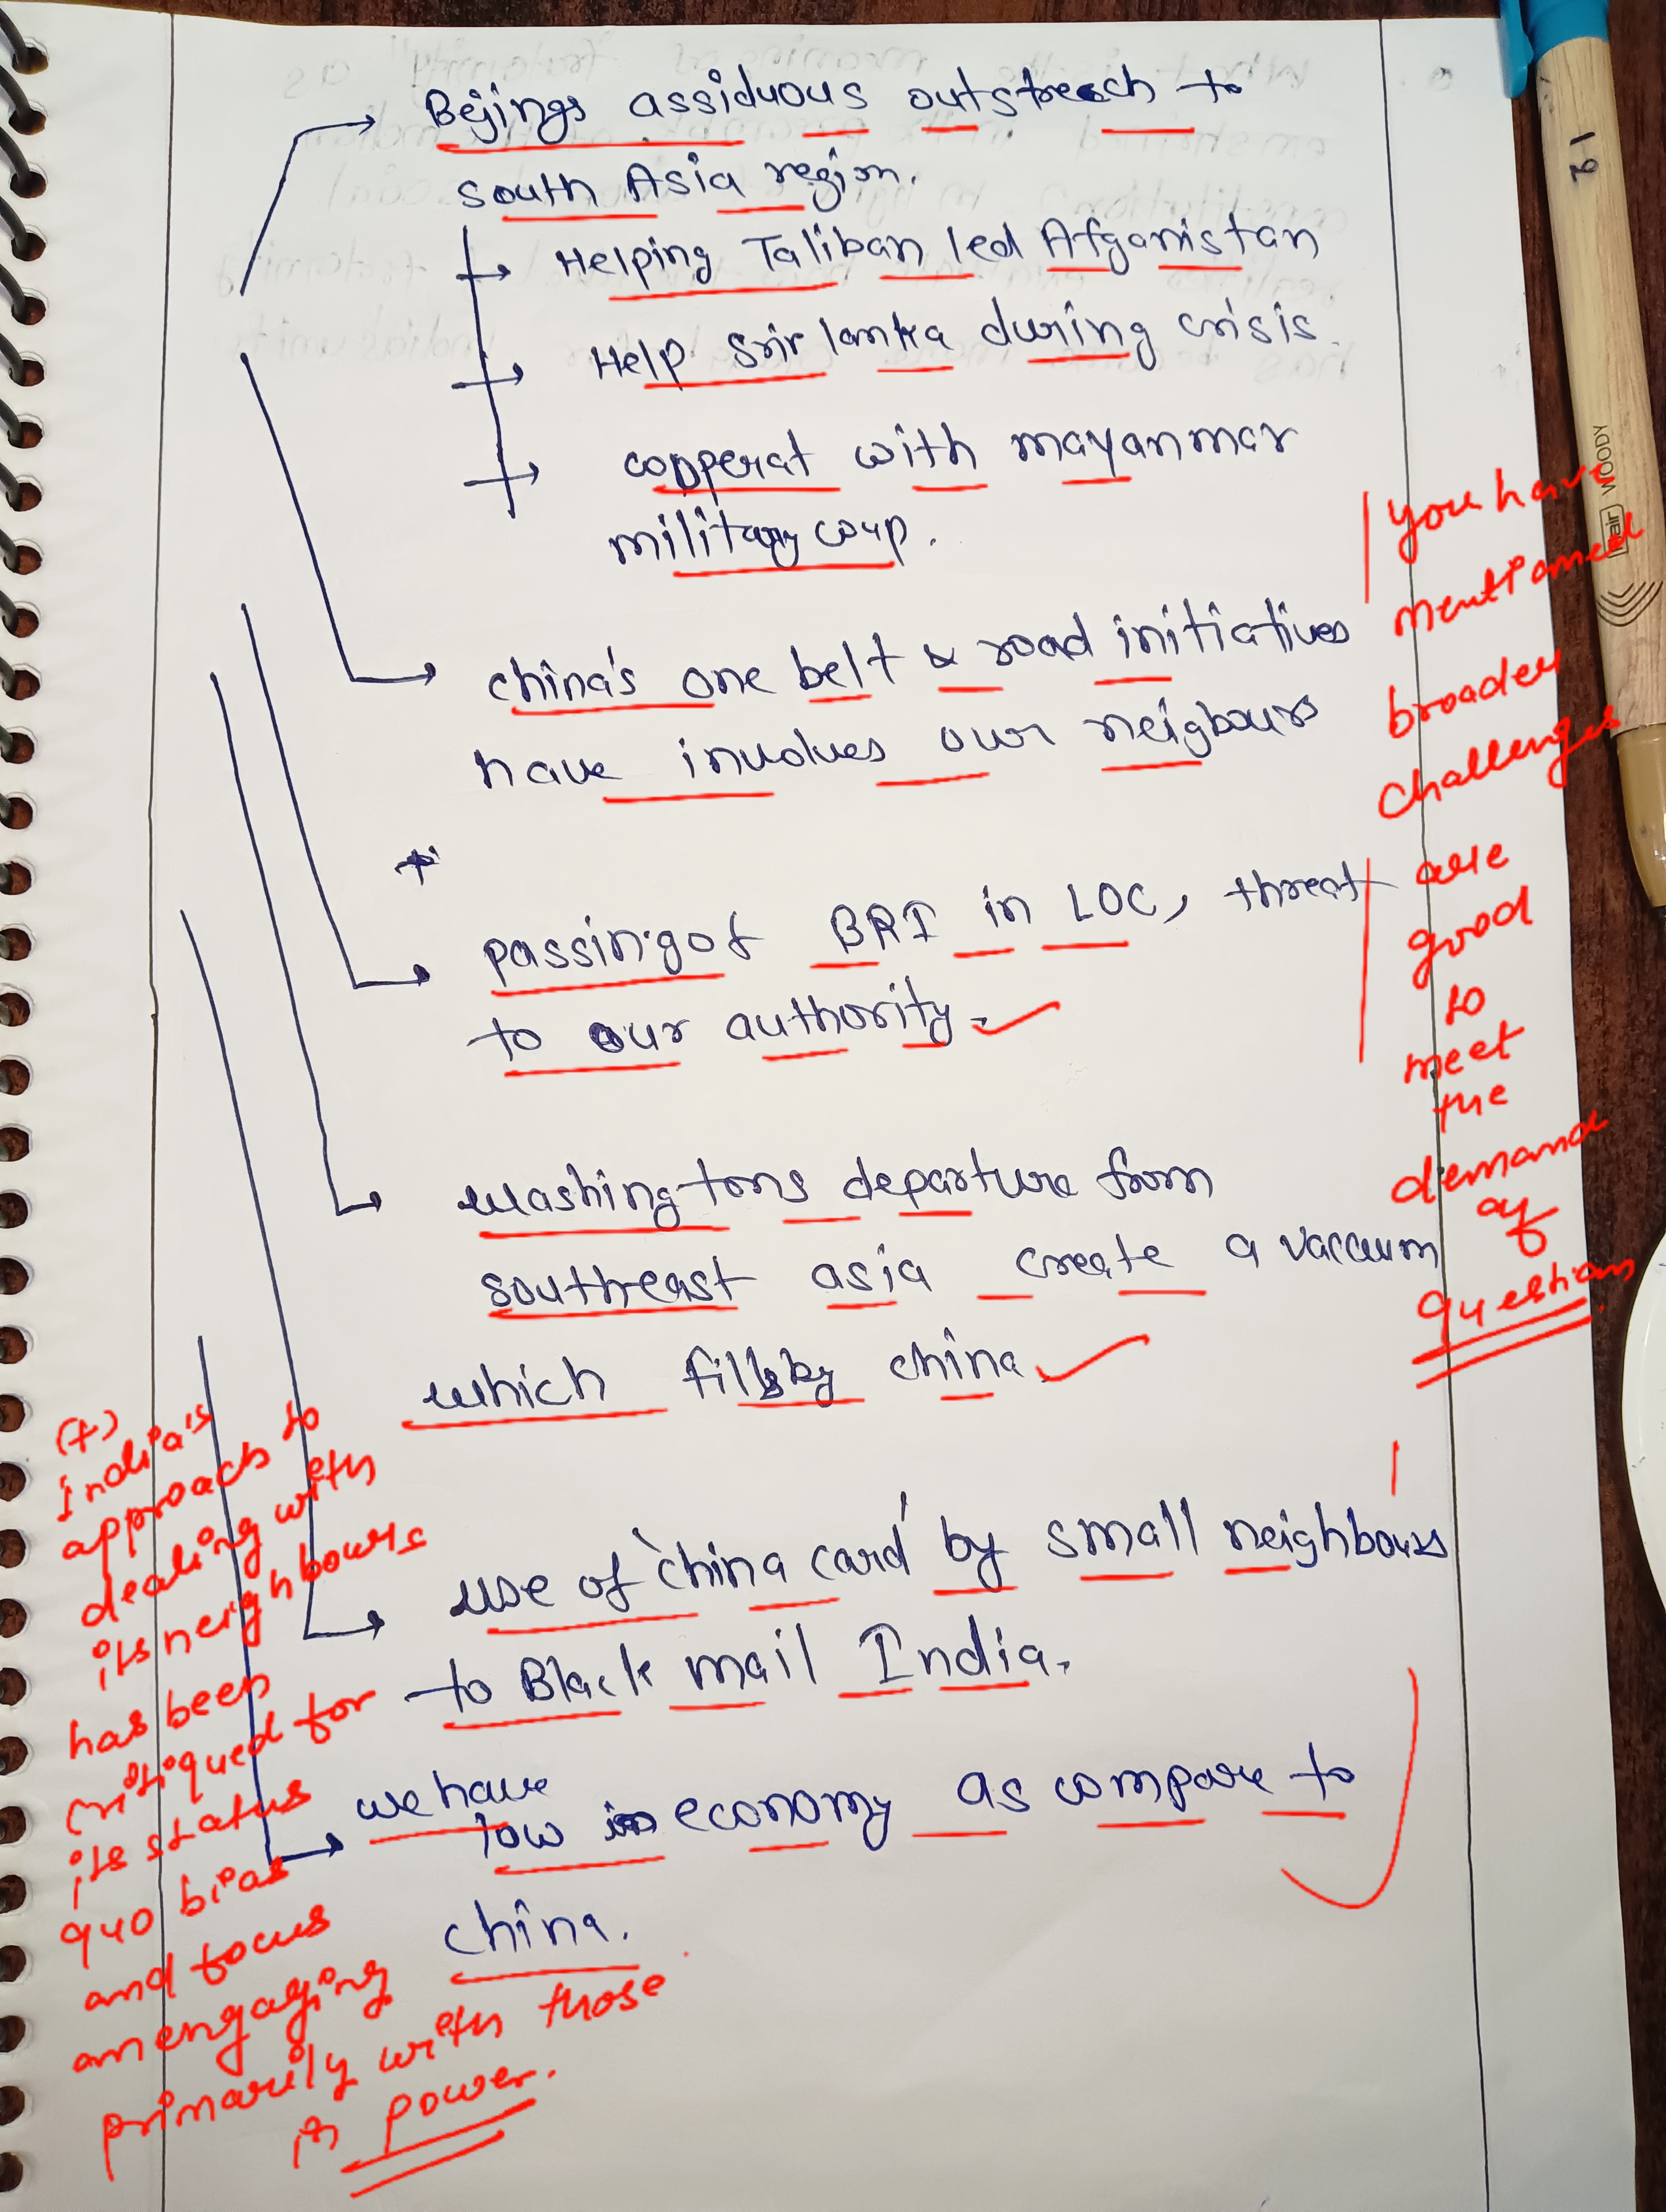 Bejings assiduous outstreach to
south Asia region.
Helping Taliban led Afganistan
Help srir lanka during crisis.
copperat with mayanmar
military coup.
china's one belt & road initiatives
have involves our neigbours
passing of BRI in LOC, threat
to our authority.
washingtons departure from
southeast asia create a vaccum
which fills by china
use of 'china card' by small neighbours
to Black mail India.
we have
low in economy as compare to
china.
you have
mentioned
broader
challenges
are
good
to
meet
the
demand
of
question
(+)
India's
approach to
dealing with
its neighbours
has been
critiqued for
its status
quo bias
and focus
on engaging
primarily with those
in power.
12
WOODY